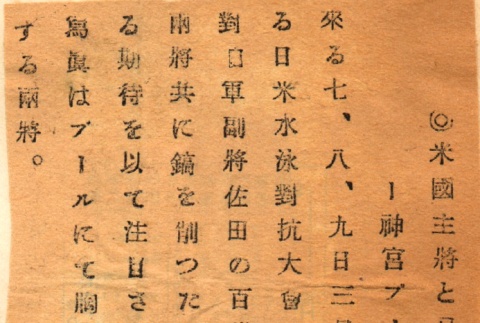 ◎米國主將と
ー神宮プ
來る七、八、九日三
る日米水泳對抗大會
對日軍副將佐田の百
兩將共に鎬を削つた
る期待を以て注目さ
寫眞はプールにて胸
する兩將。